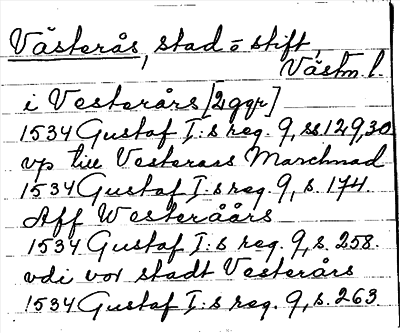 Västerås, stad o stift,
Västm. l.
i Vesterårs [2 ggr]
1534 Gustaf I:s reg. 9, ss 129,30
vp till Vesterass Marchnad
1534 Gustaf I:s reg. 9, s. 174.
Aff Westeråårs
1534 Gustaf I:s reg. 9, s. 258.
vdi vor stadt Vesterårs
1534 Gustaf I:s reg. 9, s. 263.